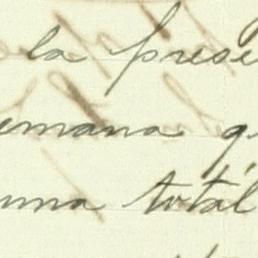 la prese
emana q
una totál